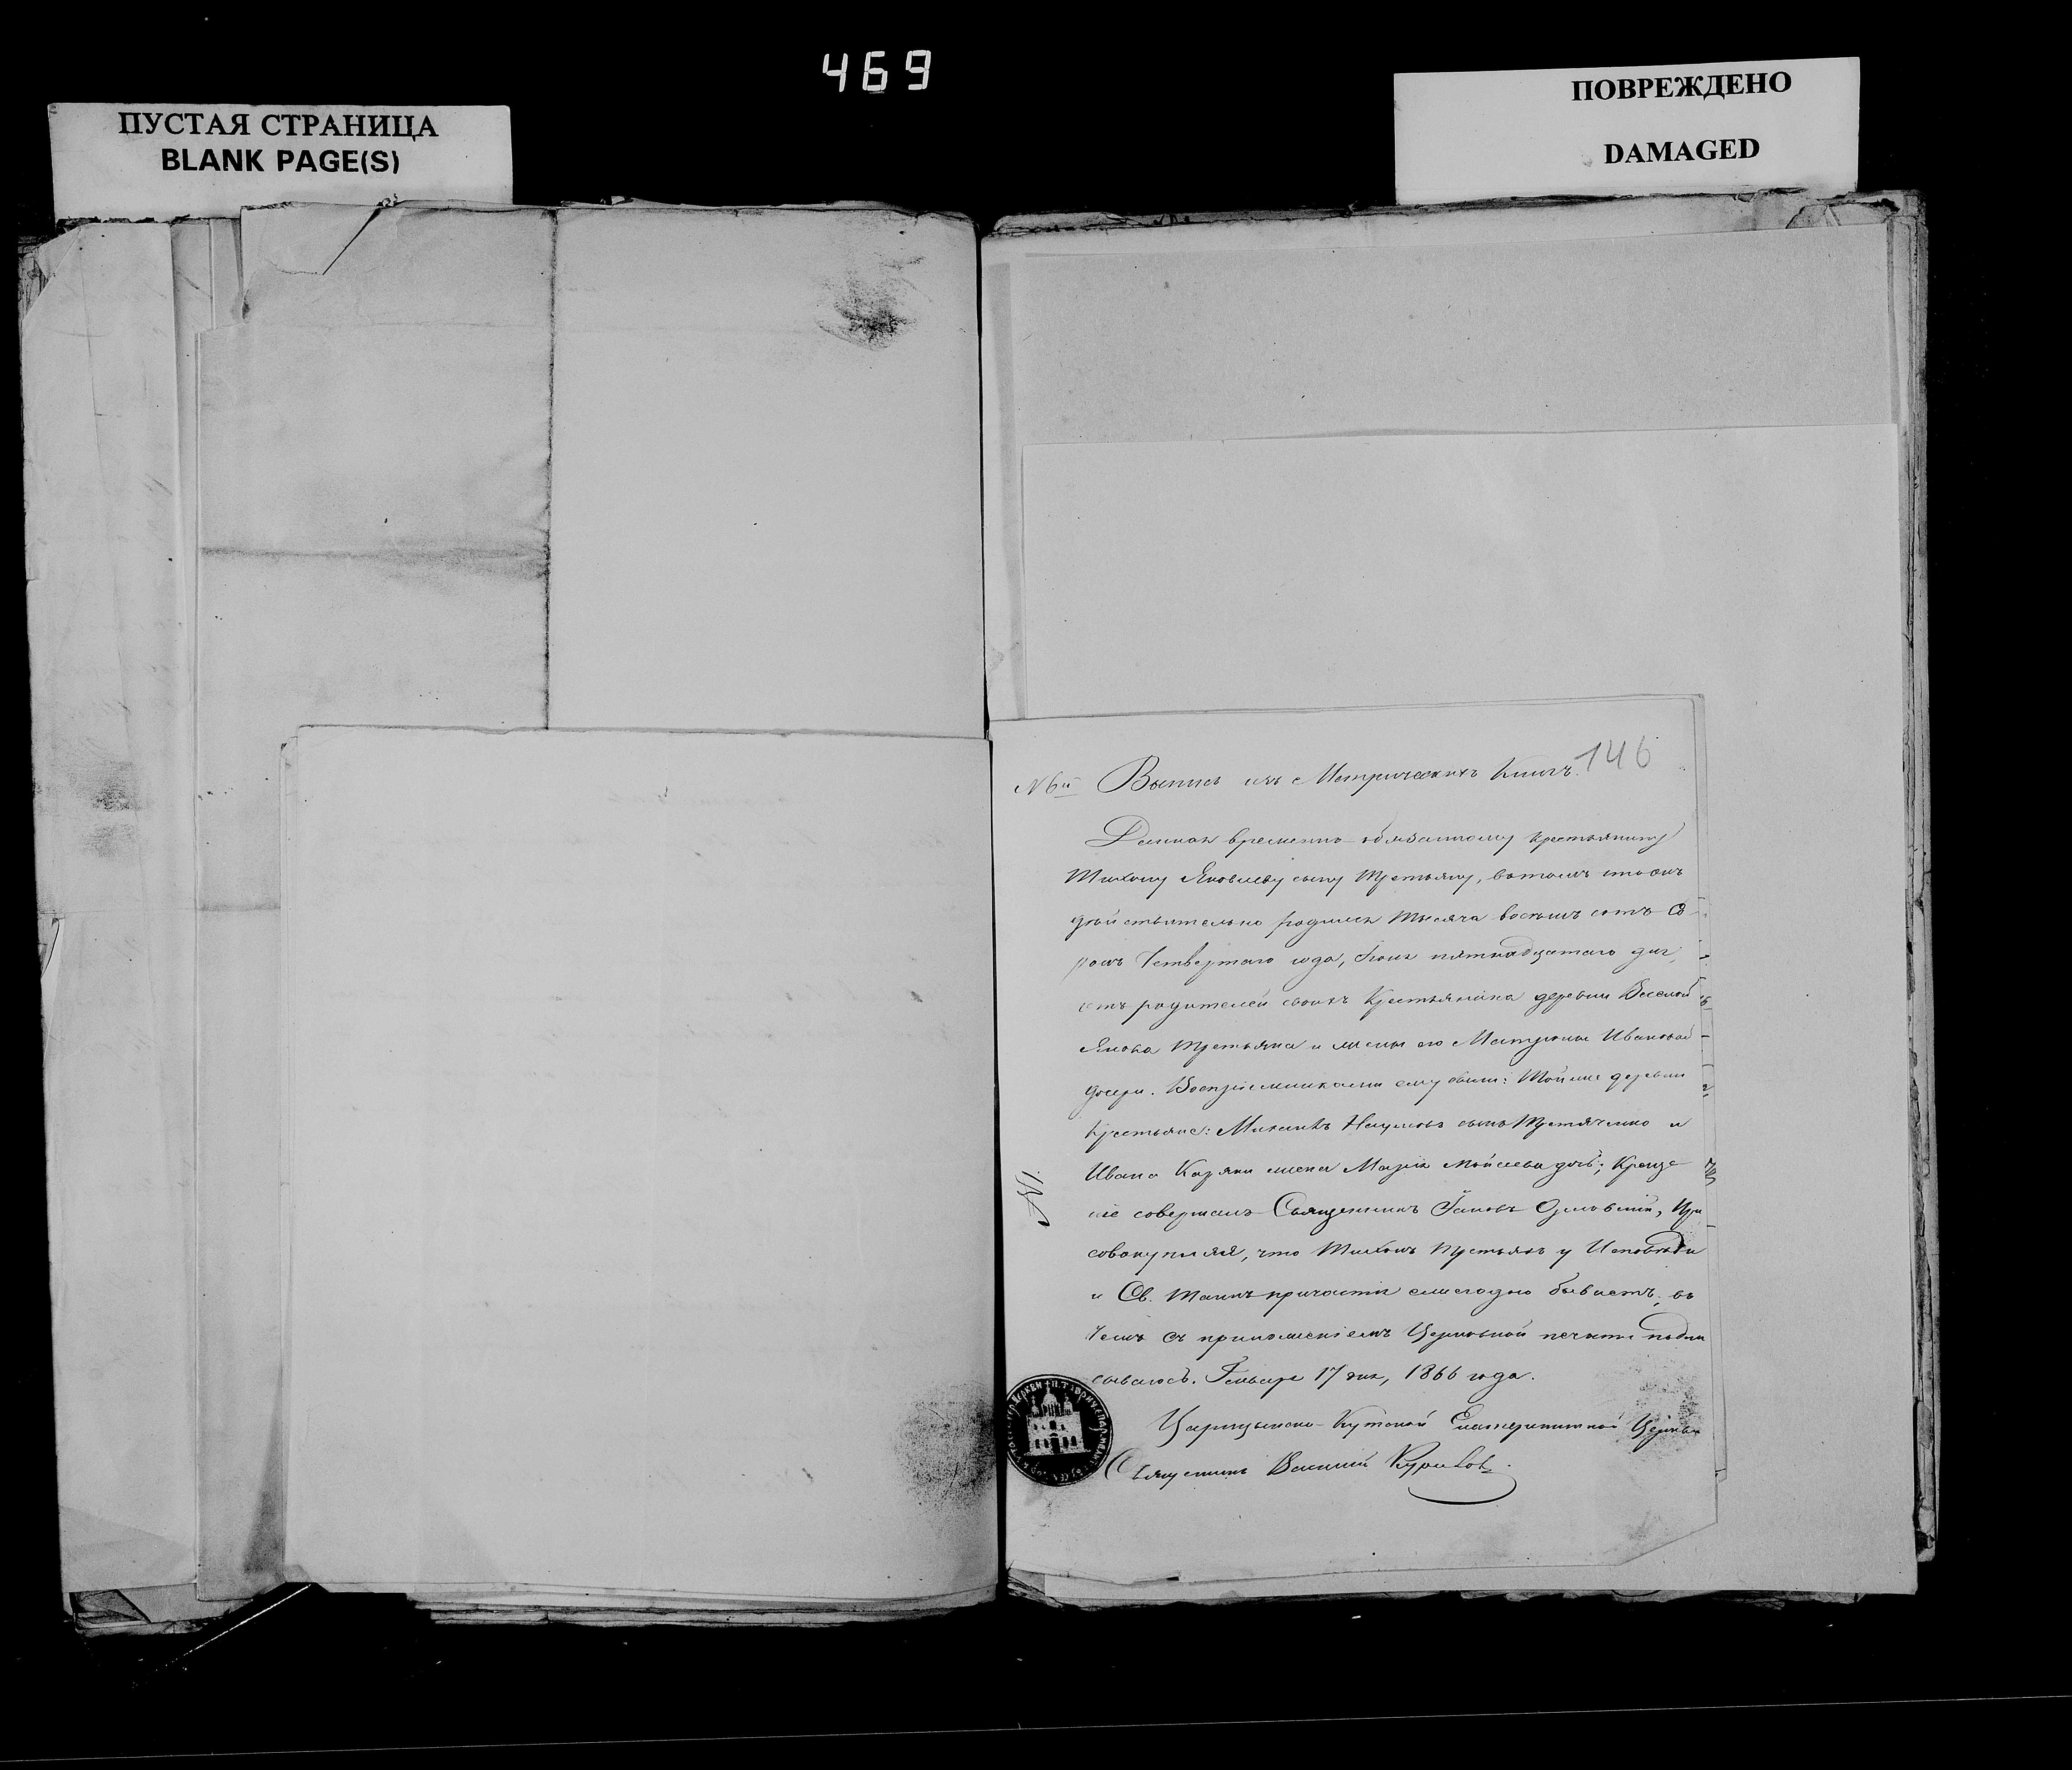 469
ПУСТАЯ СТРАНИЦА
BLANK PAGE(S)
ПОВРЕЖДЕНО
DAMAGED
146
N 6й Выпись изъ Метрическихъ Книгъ.
Данная временно-обязанному крестьянину
Тихону Яковлеву сыну Третьяку, въ томъ что онъ
дѣйствительно родился тысяча восемь сотъ Со-
рокъ Четвертаго года, Іюня пятнадцатаго дня,
отъ родителей своихъ Крестьянина деревни Веселой
Якова Третьяка и жены его Матроны Ивановой
дочери. Воспріемниками ему были: Той же деревни
Крестьяне: Наумовъ сынъ Третяченко и
Ивана жена Марія Мойсеева дочь; Креще-
ніе совершалъ Священникъ Іаковъ Орловскій, При
совокупляя, что Тихонъ Третьякъ у Исповѣди
и Св. Таинъ причастія ежегодно бываетъ, въ
Чемъ съ приложеніемъ Церковной печати подпи
сываюсь. Января 17 дня, 1866 года.
Царицынско-Кутской Екатерининской Церкви
Священникъ Василій